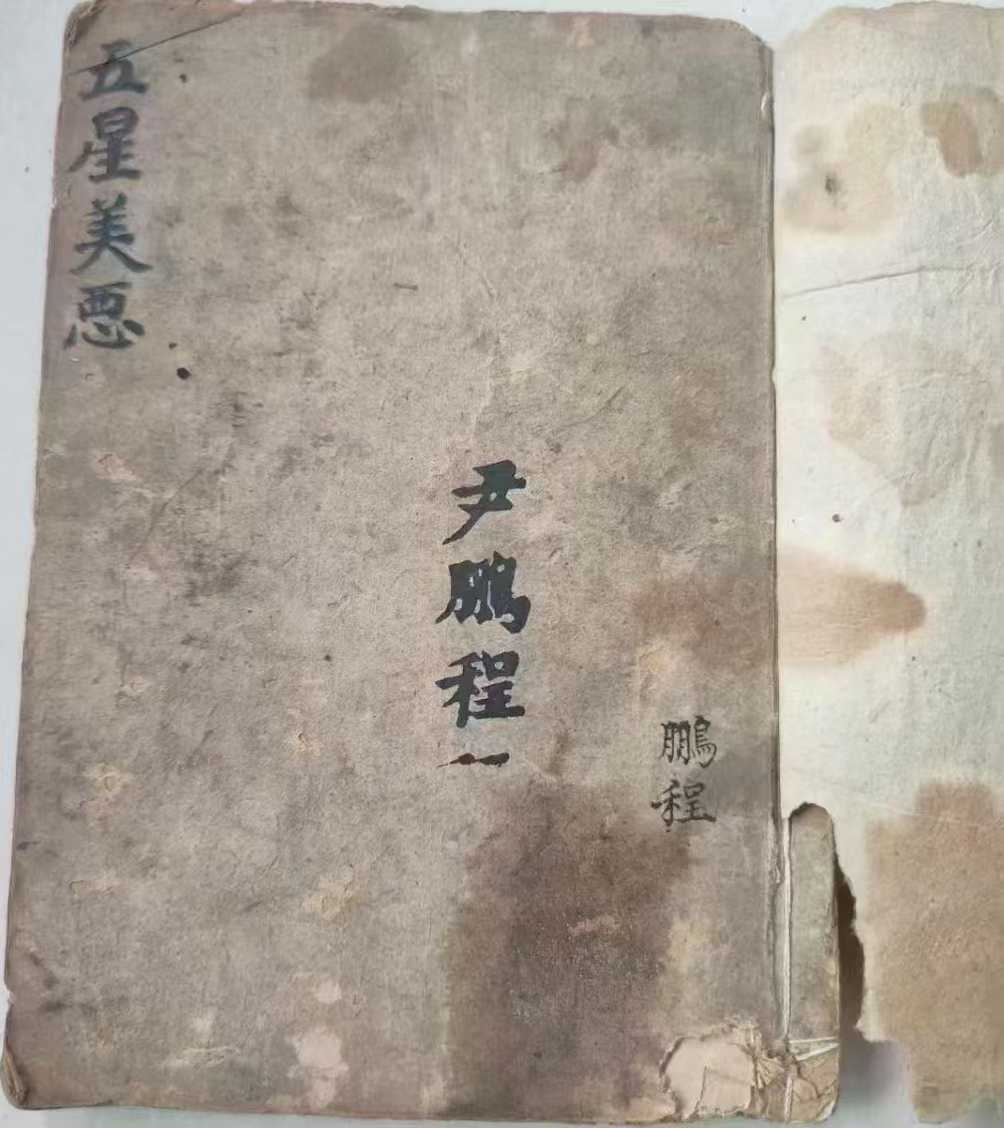 五星美恶
尹鵬程一
鵬程